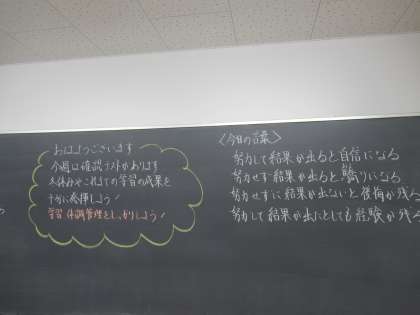 おはようございます
今週は確認テストがあります
冬休みやこれまでの学習の成果を
十分に発揮しよう!
学習、体調管理をしっかりしよう!
〈今日の言葉〉
努力して結果が出ると自信になる
努力せず結果が出ると驕りになる
努力せずに結果が出ないと後悔が残る
努力して結果が出ないとしても経験が残る